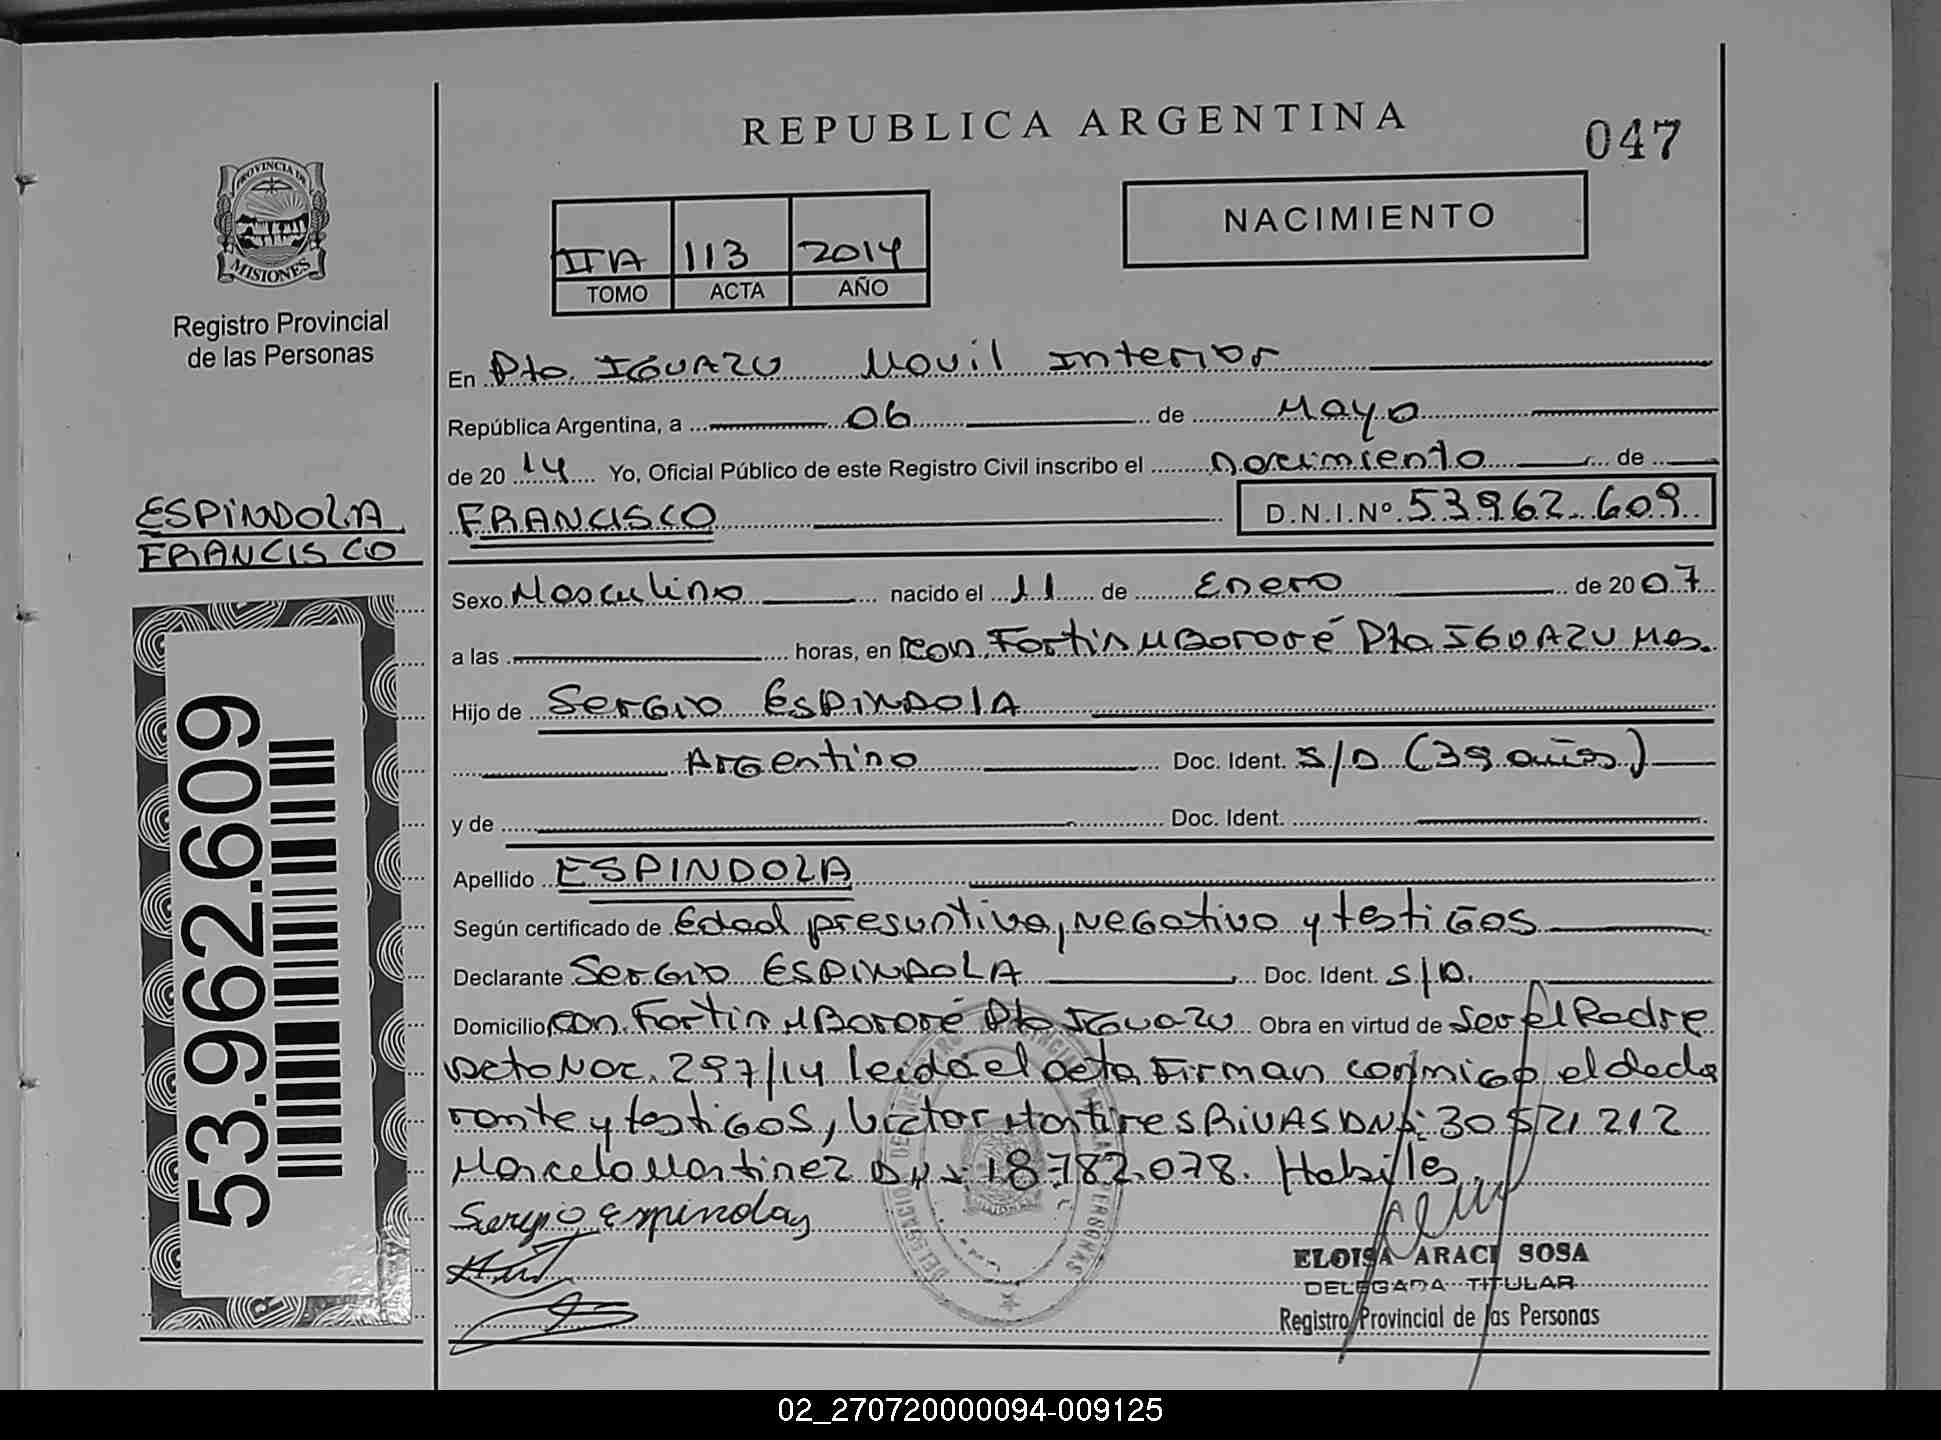 REPUBLICA ARGENTINA
047
PROVINCIA DE
MISIONES
Registro Provincial
de las Personas
NACIMIENTO
IIA 113 2014
TOMO ACTA AÑO
En Pto. IGUAZU Movil Interior
República Argentina, a 06 de Mayo
de 2014 Yo, Oficial Público de este Registro Civil inscribo el nacimiento de
ESPINDOLA
FRANCISCO
FRANCISCO D.N.I.Nº 53962.609
Sexo Masculino nacido el 11 de Enero de 2007
a las horas, en Fortin MBororé Pto IGUAZU Mes.
Hijo de Sergio ESPINDOLA
Argentino Doc. Ident. S/D (39 años)
y de Doc. Ident.
Apellido ESPINDOLA
Según certificado de Edad presuntiva, negativo y testigos
Declarante Sergio ESPINDOLA Doc. Ident. S/D.
Domicilio Fortin MBororé Pto Iguazu Obra en virtud de Ser el Padre
Dcto Nac. 297/14 leida el acta Firman conmigo el decla
rante y testigos, Victor Martires RIVAS DNI: 30.521.212
Marcelo Martinez DNI 18.782.078. Habiles
Sergio Espindola
ELOISA ARACI SOSA
DELEGADA TITULAR
Registro Provincial de las Personas
53.962.609
02_270720000094-009125